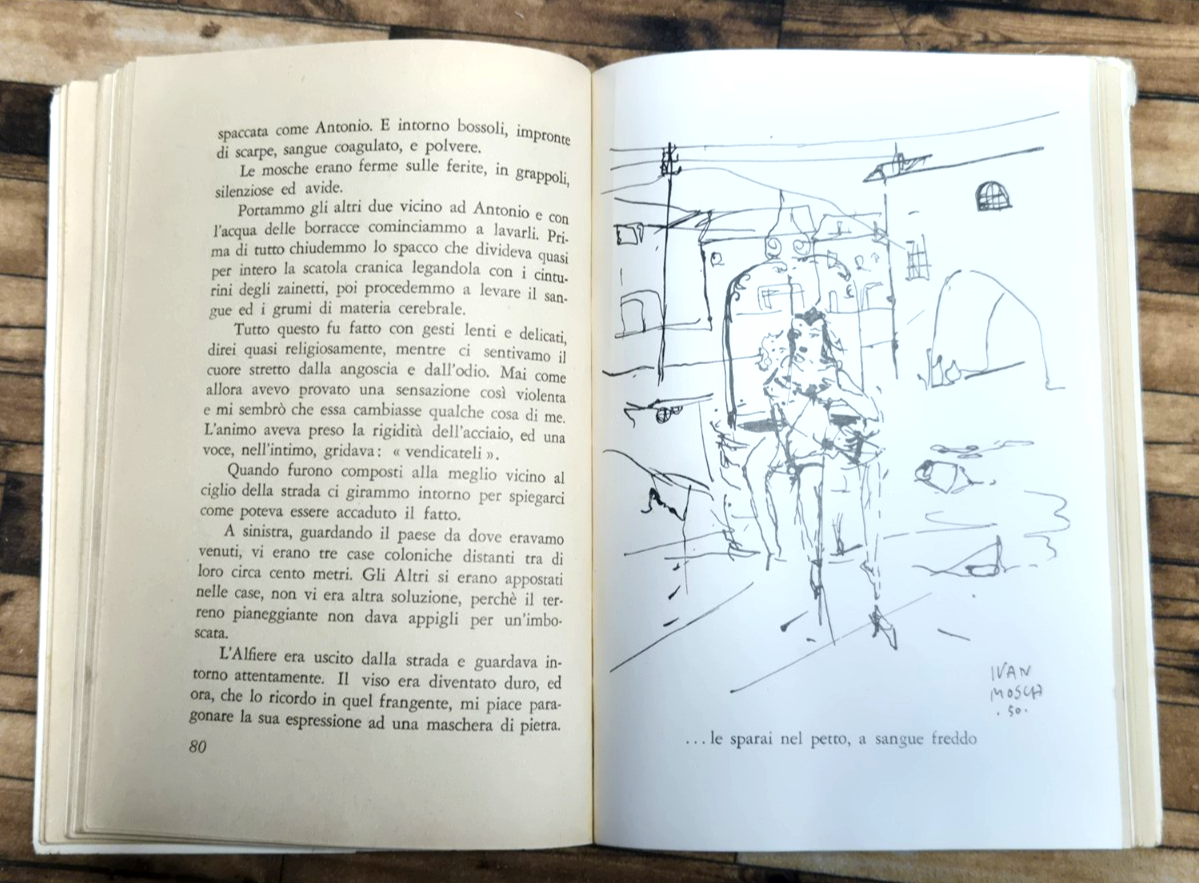 spaccata come Antonio. E intorno bossoli, impronte
di scarpe, sangue coagulato, e polvere.
Le mosche erano ferme sulle ferite, in grappoli,
silenziose ed avide.
Portammo gli altri due vicino ad Antonio e con
l'acqua delle borracce cominciammo a lavarli. Pri-
ma di tutto chiudemmo lo spacco che divideva quasi
per intero la scatola cranica legandola con i cintu-
rini degli zainetti, poi procedemmo a levare il san-
gue ed i grumi di materia cerebrale.
Tutto questo fu fatto con gesti lenti e delicati,
direi quasi religiosamente, mentre ci sentivamo il
cuore stretto dalla angoscia e dall'odio. Mai come
allora avevo provato una sensazione così violenta
e mi sembrò che essa cambiasse qualche cosa di me.
L'animo aveva preso la rigidità dell'acciaio, ed una
voce, nell'intimo, gridava: « vendicateli ».
Quando furono composti alla meglio vicino al
ciglio della strada ci girammo intorno per spiegarci
come poteva essere accaduto il fatto.
A sinistra, guardando il paese da dove eravamo
venuti, vi erano tre case coloniche distanti tra di
loro circa cento metri. Gli Altri si erano appostati
nelle case, non vi era altra soluzione, perchè il ter-
reno pianeggiante non dava appigli per un'imbo-
scata.
L'Alfiere era uscito dalla strada e guardava in-
torno attentamente. Il viso era diventato duro, ed
ora, che lo ricordo in quel frangente, mi piace para-
gonare la sua espressione ad una maschera di pietra.
80
IVAN
MOSCA
. 50 .
...le sparai nel petto, a sangue freddo